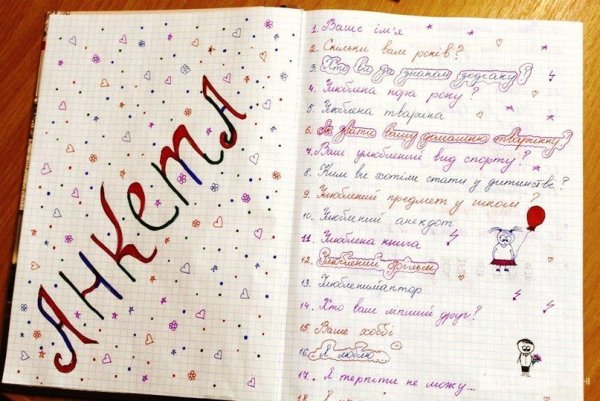 АНКЕТА
1. Ваше ім'я
2. Скільки вам років?
3. Хто ви за знаком зодіаку?
4. Улюблена пора року?
5. Улюблена тварина
6. Як звати вашу домашню тваринку?
7. Ваш улюблений вид спорту?
8. Ким ви хотіли стати у дитинстві?
9. Улюблений предмет у школі?
10. Улюблений анекдот
11. Улюблена книга
12. Улюблений фільм
13. Улюблений актор
14. Хто ваш ліпший друг?
15 Ваше хоббі
16. Я люблю...
17. Я терпіти не можу...
18. Я